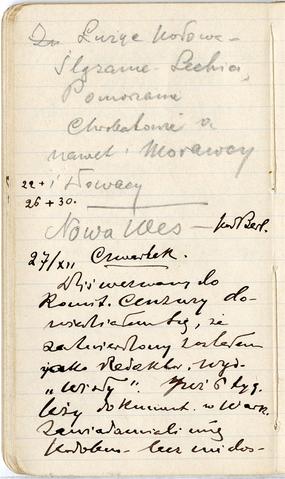 Du Lużyc
Ślązanie Lechia,
Pomorzanie
Chrobatowie a
nawet Morawcy
22 + i Słowacy
26 + 30.
Nowa Wes — pod Berl.
27/XII Czwartek.
Dziś wezwany do
Komit. Cenzury do-
wiedziałem się, że
zatwierdzony zostałem
jako Redaktor, wyd.
„Wisły". Już 6 tyg.
leży dokument w Warsz.
zawiadamiali mię